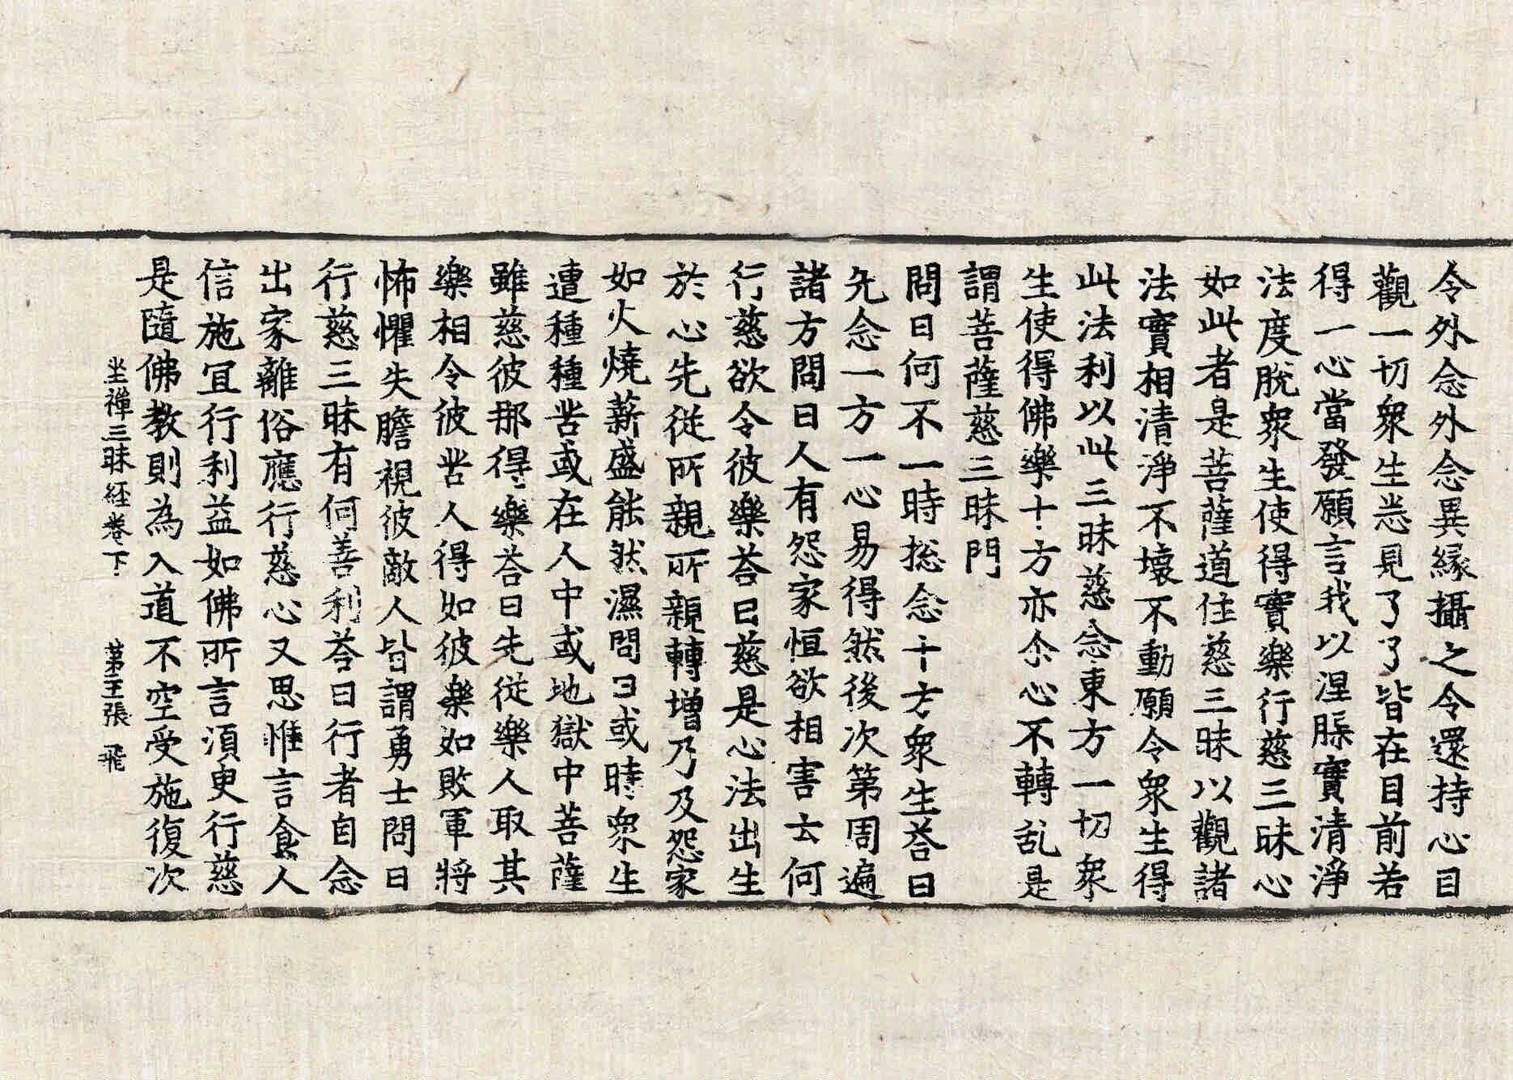 令外念外念異縁攝之令還持心目
觀一切衆生悉見了了皆在目前若
得一心當發願言我以涅槃實清淨
法度脫衆生使得實樂行慈三昧心
如此者是菩薩道住慈三昧以觀諸
法實相清淨不壞不動願令衆生得
此法利以此三昧慈念東方一切衆
生使得佛樂十方亦尒心不轉乱是
謂菩薩慈三昧門
問曰何不一時捴念十方衆生荅曰
先念一方一心易得然後次第周遍
諸方問曰人有怨家恒欲相害云何
行慈欲令彼樂荅曰慈是心法出生
於心先從所親所親轉增乃及怨家
如火燒薪盛能然濕問曰或時衆生
遭種種苦或在人中或地獄中菩薩
雖慈彼那得樂荅曰先從樂人取其
樂相令彼苦人得如彼樂如敗軍將
怖懼失膽視彼敵人皆謂勇士問曰
行慈三昧有何善利荅曰行者自念
出家離俗應行慈心又思惟言食人
信施冝行利益如佛所言湏㬰行慈
是隨佛教則為入道不空受施復次
坐禪三昧経卷下 第三張 飛